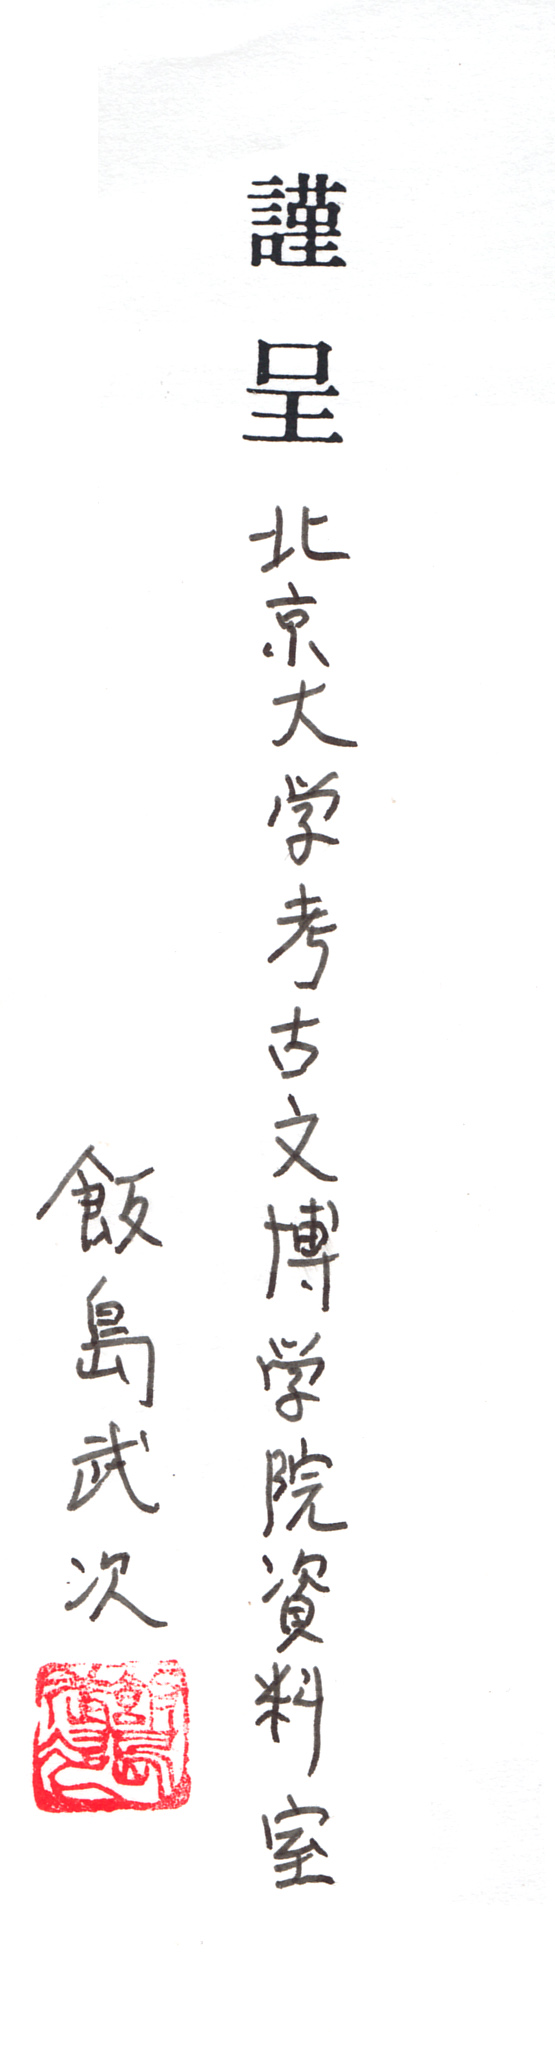 謹呈
北京大学考古文博学院資料室
飯島武次